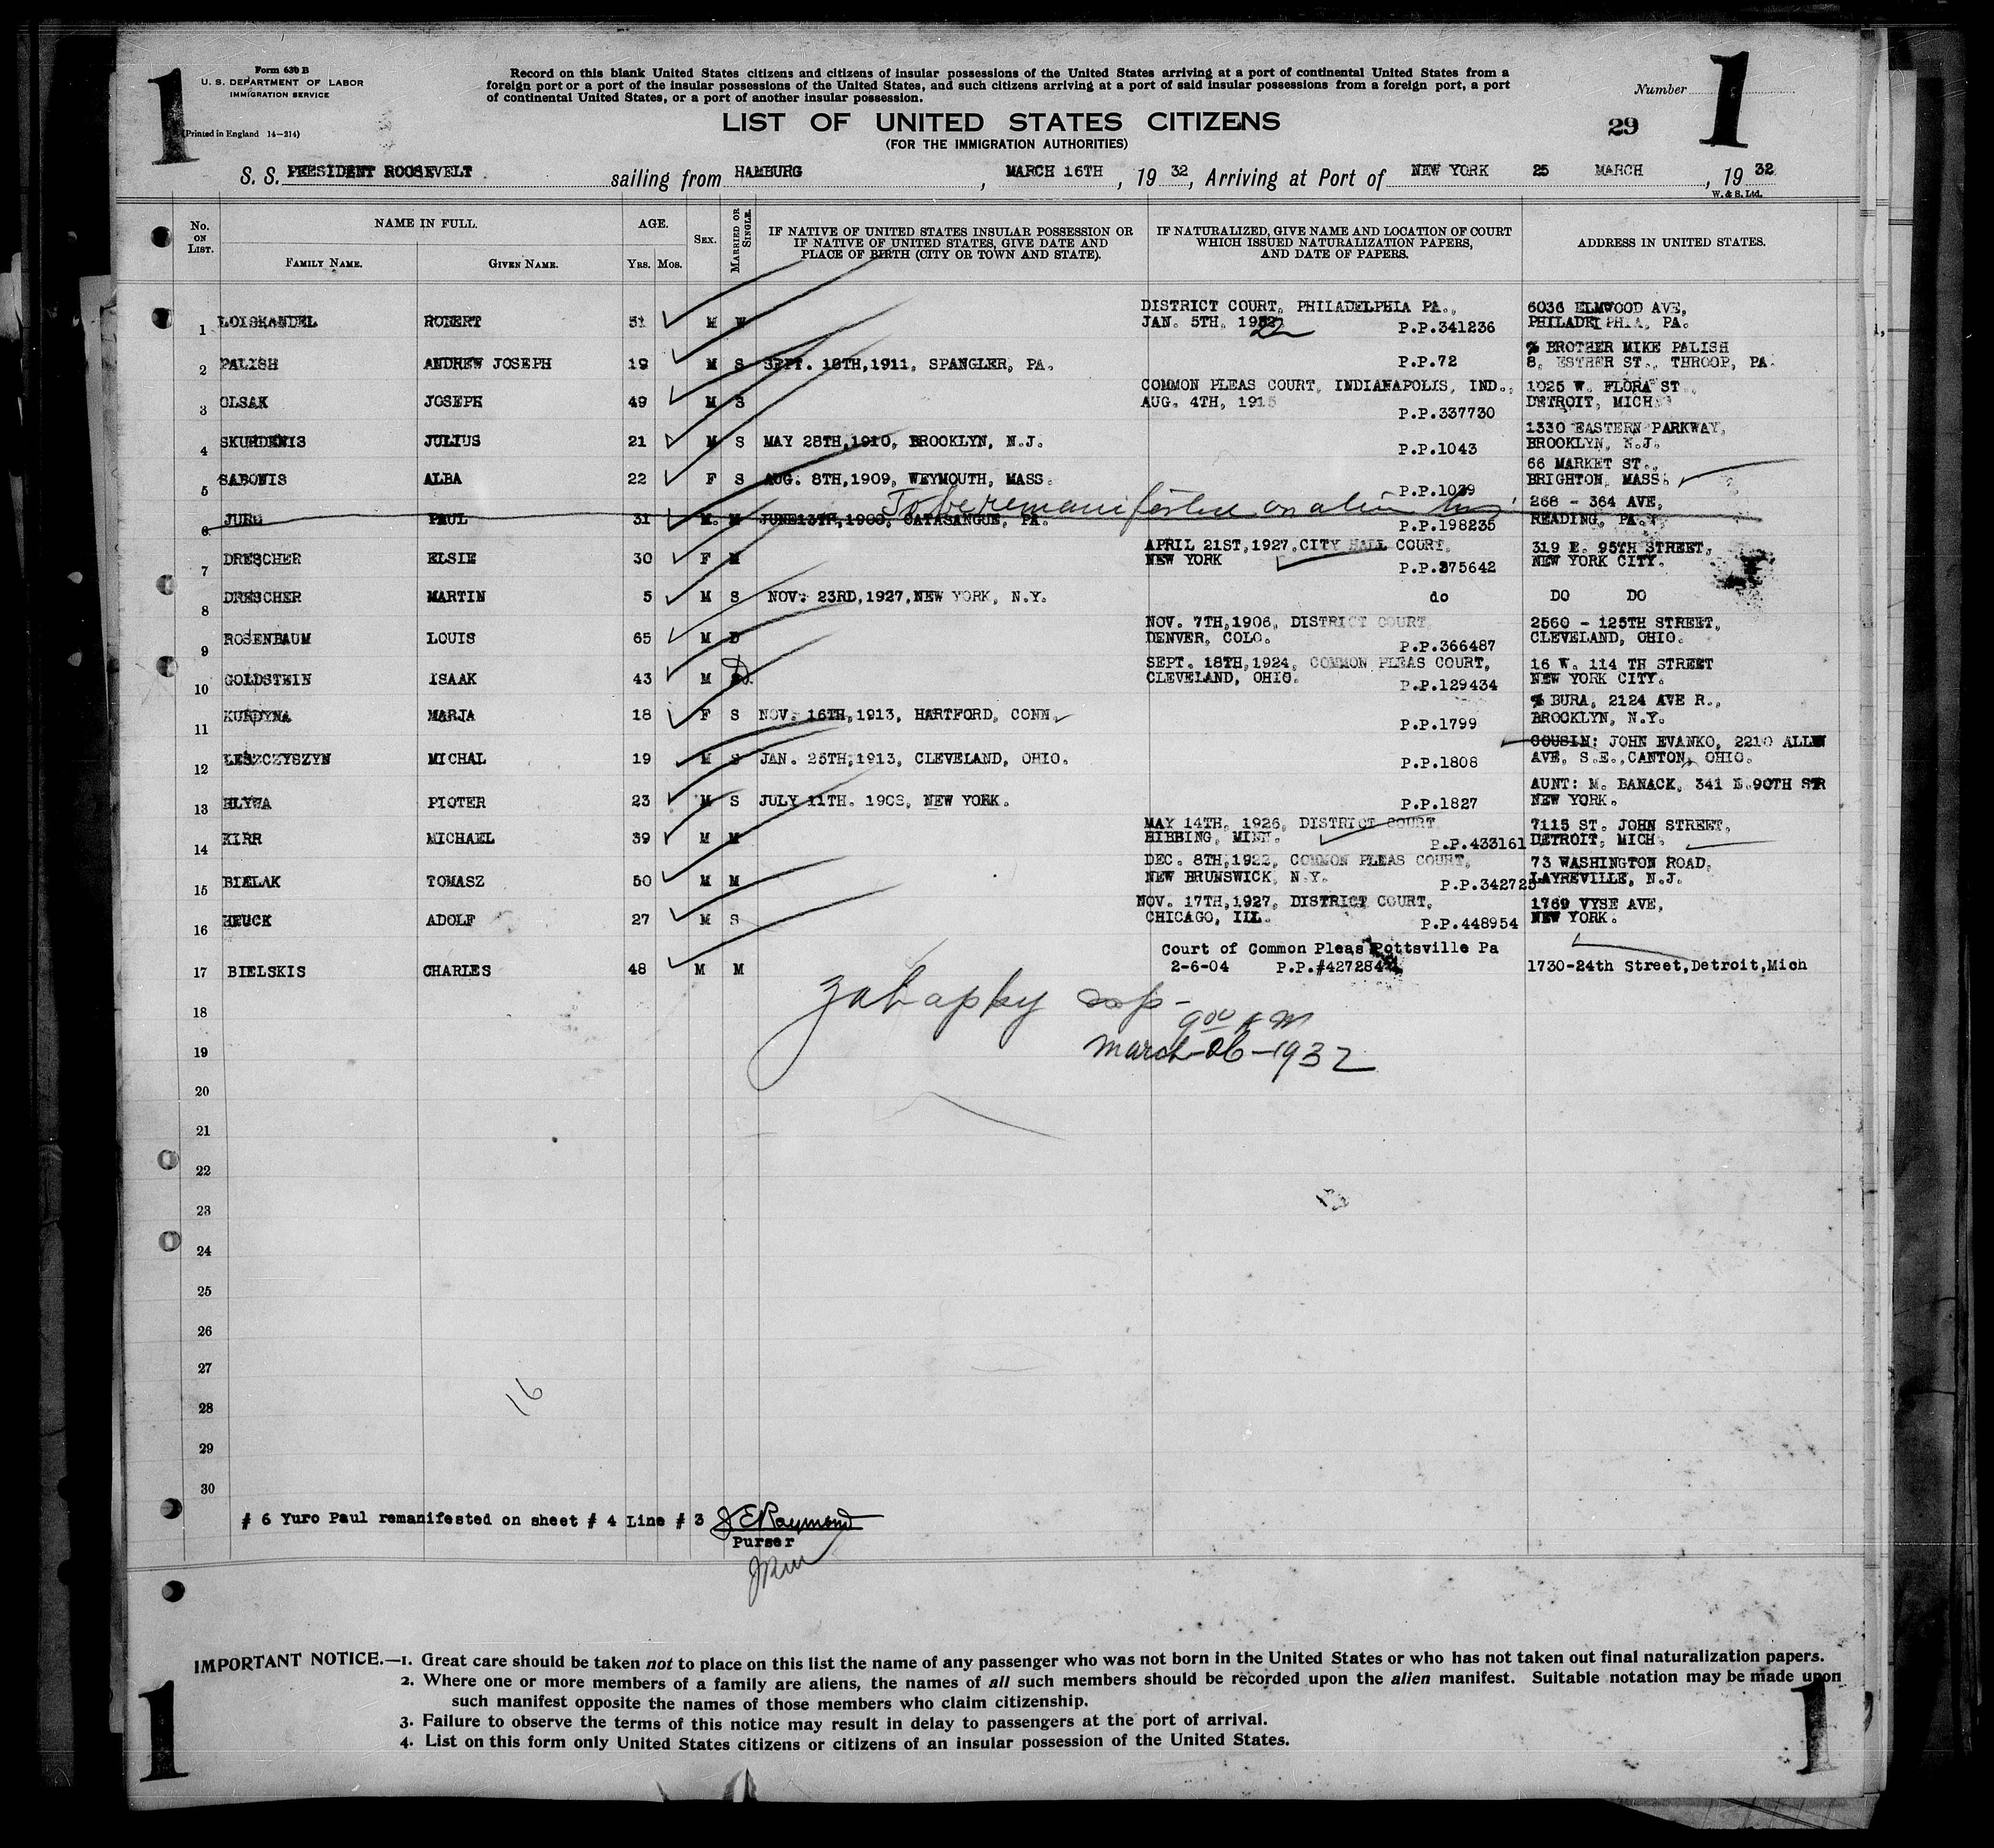 1
Form 630 B
U. S. DEPARTMENT OF LABOR
IMMIGRATION SERVICE
(Printed in England 14—214)
Record on this blank United States citizens and citizens of insular possessions of the United States arriving at a port of continental United States from a
foreign port or a port of the insular possessions of the United States, and such citizens arriving at a port of said insular possessions from a foreign port, a port
of continental United States, or a port of another insular possession.
Number
1
LIST OF UNITED STATES CITIZENS
(FOR THE IMMIGRATION AUTHORITIES)
29
S. S. PRESIDENT ROOSEVELT sailing from HAMBURG, MARCH 16TH, 19 32, Arriving at Port of NEW YORK 25 MARCH, 19 32
W. & S. Ltd.
No. ON LIST. NAME IN FULL. FAMILY NAME. GIVEN NAME. AGE. YRS. MOS. SEX. MARRIED OR SINGLE. IF NATIVE OF UNITED STATES INSULAR POSSESSION OR IF NATIVE OF UNITED STATES, GIVE DATE AND PLACE OF BIRTH (CITY OR TOWN AND STATE). IF NATURALIZED, GIVE NAME AND LOCATION OF COURT WHICH ISSUED NATURALIZATION PAPERS, AND DATE OF PAPERS. ADDRESS IN UNITED STATES.
DISTRICT COURT, PHILADELPHIA PA., 6036 ELMWOOD AVE,
1 LOISKANDEL ROBERT 51 M W JAN. 5TH, 1922 P.P.341236 PHILADELPHIA, PA.
% BROTHER MIKE PALISH
2 PALISH ANDREW JOSEPH 19 M S SEPT. 18TH,1911, SPANGLER, PA. P.P.72 8, ESTHER ST., THROOP, PA.
COMMON PLEAS COURT, INDIANAPOLIS, IND., 1025 W. FLORA ST
3 OLSAK JOSEPH 49 M S AUG. 4TH, 1915 P.P.337730 DETROIT, MICH.
1330 EASTERN PARKWAY,
4 SKURDENIS JULIUS 21 M S MAY 28TH,1910, BROOKLYN, N.J. P.P.1043 BROOKLYN, N.J.
66 MARKET ST.,
5 SABONIS ALBA 22 F S AUG. 8TH,1909, WEYMOUTH, MASS. P.P.1039 BRIGHTON, MASS.
To be remanifested on alien
268 - 364 AVE,
6 PAUL 31 M. M JUNE 13TH, CATASANGUE, PA. P.P.198235 READING, PA.
APRIL 21ST,1927,CITY HALL COURT, 319 E. 95TH STREET,
7 DRESCHER ELSIE 30 F M NEW YORK P.P.375642 NEW YORK CITY.
8 DRESCHER MARTIN 5 M S NOV. 23RD,1927,NEW YORK, N.Y. do DO DO
NOV. 7TH,1906, DISTRICT COURT, 2560 - 125TH STREET,
9 ROSENBAUM LOUIS 65 M D DENVER, COLO. P.P.366487 CLEVELAND, OHIO.
SEPT. 18TH,1924, COMMON PLEAS COURT, 16 W. 114 TH STREET
10 GOLDSTEIN ISAAK 43 M D CLEVELAND, OHIO. P.P.129434 NEW YORK CITY.
% BURA, 2124 AVE R.,
11 KURDYNA MARJA 18 F S NOV. 16TH,1913, HARTFORD, CONN. P.P.1799 BROOKLYN, N.Y.
COUSIN: JOHN EVANKO, 2210 ALLEN
12 LESZCZYSZYN MICHAL 19 M S JAN. 25TH,1913, CLEVELAND, OHIO. P.P.1808 AVE, S.E.,CANTON, OHIO.
AUNT: M. BANACK, 341 E.90TH STR
13 HLYWA PIOTER 23 M S JULY 11TH. 1908, NEW YORK. P.P.1827 NEW YORK.
MAY 14TH, 1926, DISTRICT COURT, 7115 ST. JOHN STREET,
14 KIRR MICHAEL 39 M M HIBBING, MINN. P.P.433161 DETROIT, MICH.
DEC. 8TH,1922, COMMON PLEAS COURT, 73 WASHINGTON ROAD,
15 BIELAK TOMASZ 50 M M NEW BRUNSWICK, N.Y. P.P.342725 LAYREVILLE, N.J.
NOV. 17TH,1927, DISTRICT COURT, 1769 VYSE AVE,
16 HEUCK ADOLF 27 M S CHICAGO, ILL. P.P.448954 NEW YORK.
Court of Common Pleas Pottsville Pa
17 BIELSKIS CHARLES 48 M M 2-6-04 P.P.#427284 1730-24th Street,Detroit,Mich
18
9 00 A M
19 March-26-1932
20
21
22
23
24
25
26
27
16
28
29
30
# 6 Yuro Paul remanifested on sheet # 4 Line # 3 J E Raymond
Purser
IMPORTANT NOTICE.—1. Great care should be taken not to place on this list the name of any passenger who was not born in the United States or who has not taken out final naturalization papers.
2. Where one or more members of a family are aliens, the names of all such members should be recorded upon the alien manifest. Suitable notation may be made upon
such manifest opposite the names of those members who claim citizenship.
3. Failure to observe the terms of this notice may result in delay to passengers at the port of arrival.
4. List on this form only United States citizens or citizens of an insular possession of the United States.
1
1